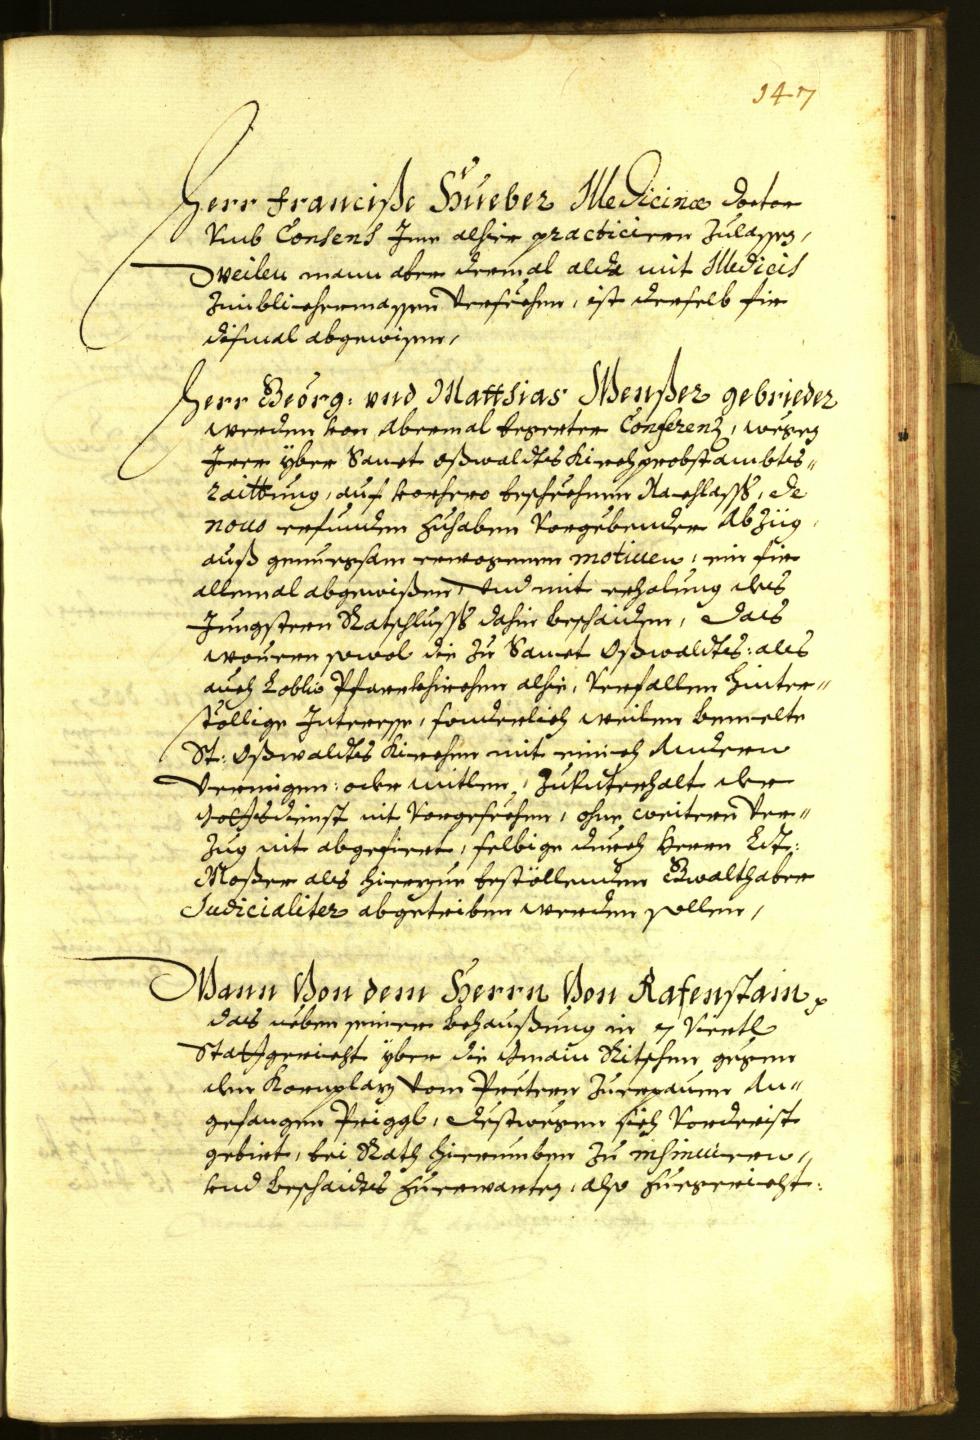 147
Herr Francisc Hueber Medicinæ doctor
umb Consens Ime alhier practiciern zulassen,
weilen mann aber dermal alda mit Medicis
zimblichermassen versechen, ist derselb fir
dismal abgewisen,
Herr Georg: und Matthias Menßer gebrieder
werden von abermal begerter Conferenz, wegen
Irer yber Sanct Oßwaldts Kirchprobstambts
Raittung, auf vorhero beschechnen Nachlass, de
novo erfunden zuhaben vorgebender Abzüg
auß genuegsam erwognen motiven, ein fir
allemal abgewißen, und mit erholung des
Jungstern Ratschluss dahin beschaiden, das
wouern sowol die zu Sanct Oßwaldts: als
auch Loblic Pfarrkhirchen alhie, verfallen hinter
stöllige Interesse, sonderlich weilen bemelte
St: Oßwaldts Kirchen mit einich andern
vermigen: oder mitlen, zu unterhalt der
Gottsdienst nit vorgesechen, ohne weitern ver
zug nit abgefiert, selbige durch Herrn Lit:
Moßer als hierzue bestöllenden Gwalthaber
Judicialiter abgetriben werden sollen,
Wann Von dem Herrn Von Rafenstain
das neben seiner behaußung in 7 viertl
Stattgericht yber die gmain Ritschen gegen
den Kornplaz vom Pretern zuerpauen an
gefangen Priggl, destwegen sich vorderist
gebirt, bei Rath hierumben zu insinuiern,
und beschaidts zuerwarten, also zuegericht: